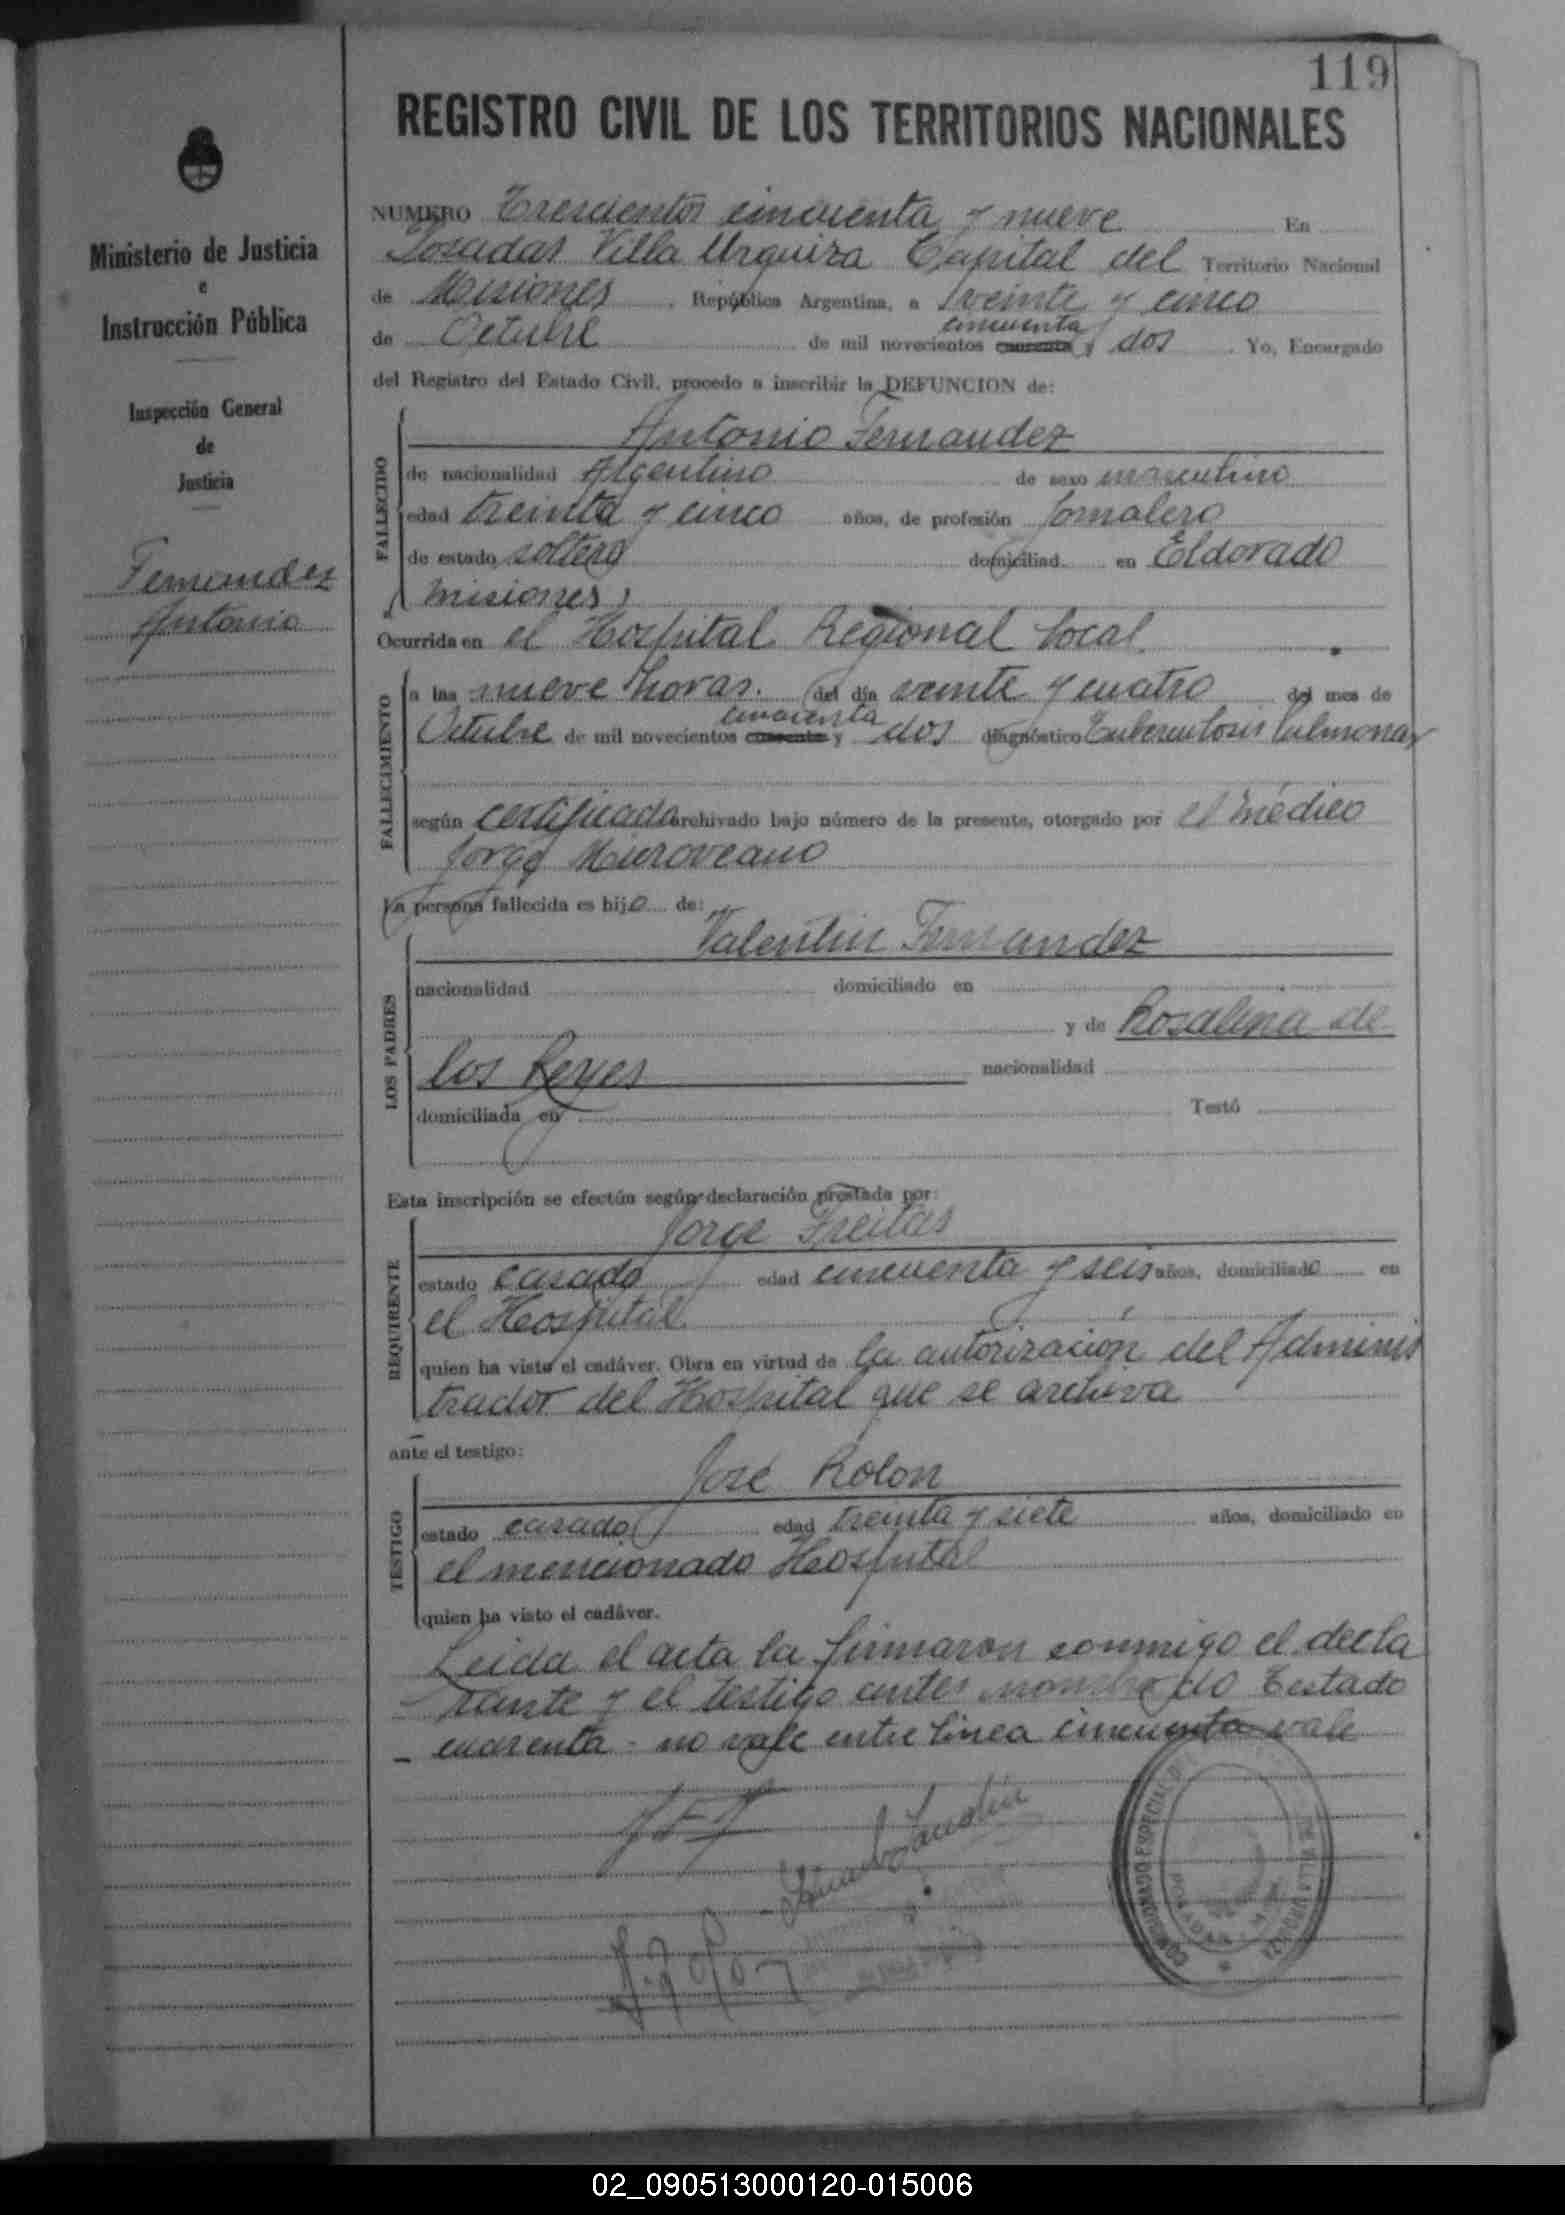 119
REGISTRO CIVIL DE LOS TERRITORIOS NACIONALES
Ministerio de Justicia
e
Instrucción Pública
Inspección General
de
Justicia
Fernandez
Antonio
NUMERO Trescientos cincuenta y nueve En
Posadas Villa Urquiza Capital del Territorio Nacional
de Misiones . República Argentina, a veinte y cinco
cincuenta
de Octubre de mil novecientos cuarenta y dos . Yo, Encargado
del Registro del Estado Civil, procedo a inscribir la DEFUNCION de:
FALLECIDO
Antonio Fernandez
de nacionalidad Argentino de sexo masculino
edad treinta y cinco años, de profesión Jornalero
de estado soltero domiciliad en Eldorado
Misiones
Ocurrida en el Hospital Regional local
FALLECIMIENTO
a las nueve horas. del día veinte y cuatro del mes de
cincuenta
Octubre de mil novecientos cuarenta y dos diagnóstico Tuberculosis Pulmonar
según certificado archivado bajo número de la presente, otorgado por el médico
Jorge
La persona fallecida es hijo de:
LOS PADRES
Valentin Fernandez
nacionalidad domiciliado en
y de Rosalina de
los Reyes nacionalidad
domiciliada en Testó
Esta inscripción se efectúa según declaración prestada por:
REQUIRENTE
Jorge Freitas
estado casado edad cincuenta y seis años, domiciliado en
el Hospital
quien ha visto el cadáver. Obra en virtud de la autorización del Adminis
trador del Hospital que se archiva
ante el testigo:
TESTIGO
José Rolon
estado casado edad treinta y siete años, domiciliado en
el mencionado Hospital
quien ha visto el cadáver.
Leida el acta la firmaron conmigo el decla
rante y el testigo antes Testado
cuarenta - no vale entre linea cincuenta vale
COMISIONADO ESPECIAL DE VILLA URQUIZA
02_090513000120-015006